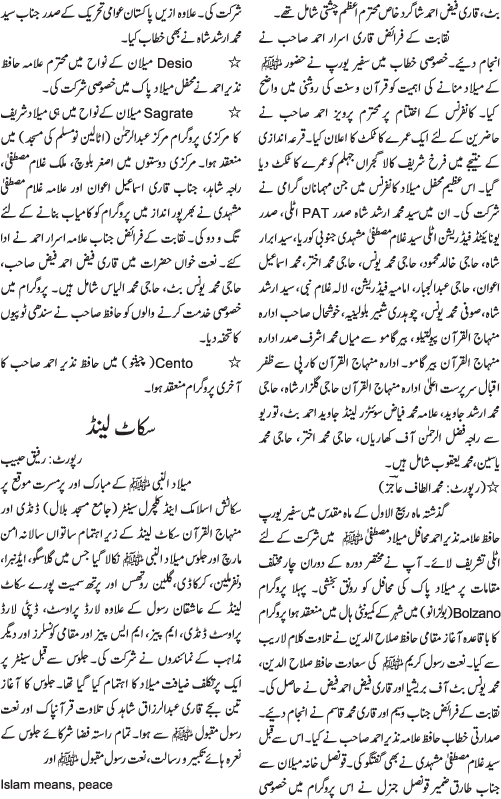 بٹ، قاری فیض احمد شاگرد خاص محترم اعظم چشتی شامل تھے۔
نقابت کے فرائض قاری اسرار احمد صاحب نے
انجام دیئے۔ خصوصی خطاب میں سفیر یورپ نے حضور ﷺ
کے میلاد منانے کی اہمیت کو قرآن و سنت کی روشنی میں واضح
کیا۔ کانفرنس کے اختتام پر محترم پرویز احمد صاحب نے
حاضرین کے لئے ایک عمرے کا ٹکٹ کا اعلان کیا۔ قرعہ اندازی
کے نتیجے میں فرخ شریف کالا گجراں جہلم کو عمرے کا ٹکٹ دیا
گیا۔ اس عظیم محفل میلاد کانفرنس میں جن مہمانان گرامی نے
شرکت کی۔ ان میں سید محمد ارشد شاہ صدر PAT اٹلی، صدر
یونائیٹڈ فیڈریشن اٹلی سید غلام مصطفیٰ مشہدی جنوبی کوریا، سید ابرار
شاہ، حاجی خالد محمود، حاجی محمد یونس، حاجی محمد اختر، محمد اسماعیل
اعوان، حاجی عبدالجبار، امامیہ فیڈریشن، لالہ غلام نبی، سید ارشد
شاہ، صوفی محمد یونس، چوہدری شبیر بلولیہ، خوشحال صاحب ادارہ
منہاج القرآن پیولتیلو، بیرگامو سے میاں محمد اشرف صدر ادارہ
منہاج القرآن بیرگامو۔ ادارہ منہاج القرآن کارپی سے ظفر
اقبال سرپرست اعلیٰ ادارہ منہاج القرآن حاجی گلزار شاہ، حاجی
محمد ارشد جاوید، علامہ محمد فیاض سوئٹزر لینڈ جاوید احمد بٹ، توریو
سے راجہ فضل الرحمٰن آف کھاریاں، حاجی محمد اختر، حاجی محمد
یاسین، محمد یعقوب شامل ہیں۔
☆ (رپورٹ: محمد الطاف عاجز)
گذشتہ ماہ ربیع الاول کے ماہ مقدس میں سفیر یورپ
حافظ علامہ نذیر احمد محافل میلاد مصطفیٰ ﷺ میں شرکت کے لئے
اٹلی تشریف لائے۔ آپ نے مختصر دورہ کے دوران چار مختلف
مقامات پر میلاد پاک کی محافل کو رونق بخشی۔ پہلا پروگرام
Bolzano (بولزانو) میں شہر کے کمیونٹی ہال میں منعقد ہوا پروگرام
کا باقاعدہ آغاز مقامی حافظ صلاح الدین نے تلاوت کلام لاریب
سے کیا۔ نعت رسول کریم ﷺ کی سعادت حافظ صلاح الدین،
محمد یونس بٹ آف بریشیا اور قاری فیض احمد فیض نے حاصل کی۔
نقابت کے فرائض جناب وسیم اور قاری محمد قاسم نے انجام دیئے۔
صدارتی خطاب حافظ علامہ نذیر احمد صاحب نے کیا۔ اس سے قبل
سید غلام مصطفیٰ مشہدی نے بھی گفتگو کی۔ قونصل خانہ میلان سے
جناب طارق ضمیر قونصل جنرل نے اس پروگرام میں خصوصی
شرکت کی۔ علاوہ ازیں پاکستان عوامی تحریک کے صدر جناب سید
محمد ارشد شاہ نے بھی خطاب کیا۔
☆ Desio میلان کے نواح میں محترم علامہ حافظ
نذیر احمد نے محفل میلاد پاک میں خصوصی شرکت کی۔
☆ Sagrate میلان کے نواح میں ہی میلاد شریف
کا مرکزی پروگرام مرکز عبدالرحمٰن (اٹالین نو مسلم کی مسجد) میں
منعقد ہوا۔ مرکزی دوستوں میں اصغر بلوچ، ملک غلام مصطفیٰ،
راجہ شاہد، جناب قاری اسماعیل اعوان اور علامہ غلام مصطفیٰ
مشہدی نے بھرپور انداز میں پروگرام کو کامیاب بنانے کے لئے
تگ و دو کی۔ نقابت کے فرائض جناب علامہ اسرار احمد نے ادا
کئے۔ نعت خواں حضرات میں قاری فیض احمد فیض صاحب،
حاجی محمد یونس بٹ، حاجی محمد الیاس شامل ہیں۔ پروگرام میں
خصوصی خدمت کرنے والوں کو حافظ صاحب نے سندھی ٹوپیوں
کا تحفہ دیا۔
☆ Cento (چینٹو) میں حافظ نذیر احمد صاحب کا
آخری پروگرام منعقد ہوا۔
سکاٹ لینڈ
رپورٹ: رفیق حبیب
میلاد النبی ﷺ کے مبارک اور پرمسرت موقع پر
سکاٹش اسلامک اینڈ کلچرل سینٹر (جامع مسجد بلال) ڈنڈی اور
منہاج القرآن سکاٹ لینڈ کے زیراہتمام ساتواں سالانہ امن
مارچ اور جلوس میلاد النبی ﷺ نکالا گیا جس میں گلاسکو، ایڈنبرا،
ڈنفرملین، کرکاڈی، گلین روتھس اور پرتھ سمیت پورے سکاٹ
لینڈ کے عاشقان رسول کے علاوہ لارڈ پراوسٹ، ڈپٹی لارڈ
پراوسٹ ڈنڈی، ایم پیز، ایم ایس پیز اور مقامی کونسلرز اور دیگر
مذاہب کے نمائندوں نے شرکت کی۔ جلوس سے قبل سینٹر پر
ایک پرتکلف ضیافت میلاد کا اہتمام کیا گیا تھا۔ جلوس کا آغاز
تین بجے قاری عبدالرزاق شاہد کی تلاوت قرآن پاک اور نعت
رسول مقبول ﷺ سے ہوا۔ تمام راستہ فضا شرکائے جلوس کے
نعرہ ہائے تکبیر و رسالت، نعت رسول مقبول ﷺ اور
Islam means, peace